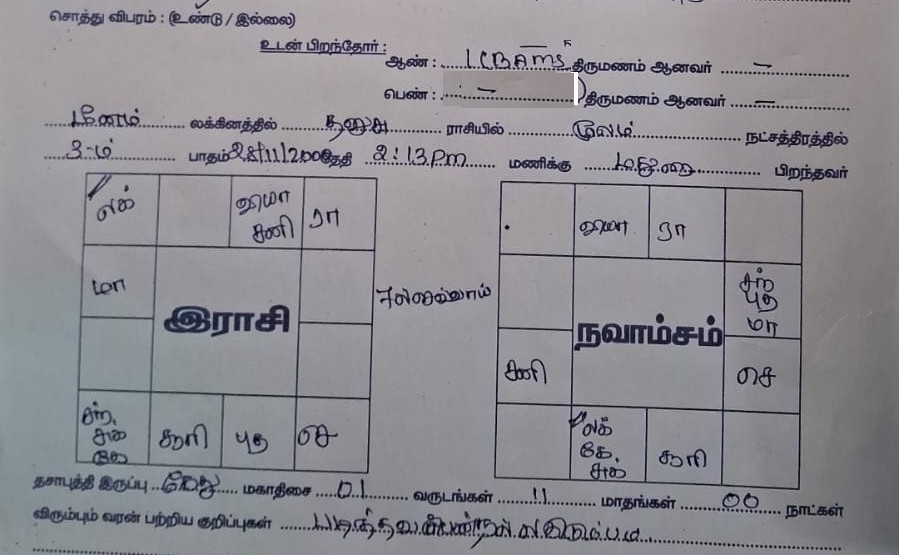 சொத்து விபரம் : (உண்டு / இல்லை)
உடன் பிறந்தோர் :
ஆண் : 1 (BAMS திருமணம் ஆனவர் –
பெண் : – ) திருமணம் ஆனவர் –
மீனம் லக்கினத்தில் தனுசு ராசியில் மூலம் நட்சத்திரத்தில்
3-ம் பாதம் 28/11/2000 தேதி 2:13 P.m மணிக்கு பிறந்தவர்
லக்
குரு
சனி
ரா
மா
இராசி
சந்
சுக்
கே
சூரி
புத
செ
குரு
ரா
சந்
புத
மா
நவாம்சம்
சனி
செ
லக்
கே,
சுக்
சூரி
தசாபுத்தி இருப்பு கேது மகாதிசை 01 வருடங்கள் 11 மாதங்கள் 00 நாட்கள்
விரும்பும் வரன் பற்றிய குறிப்புகள்